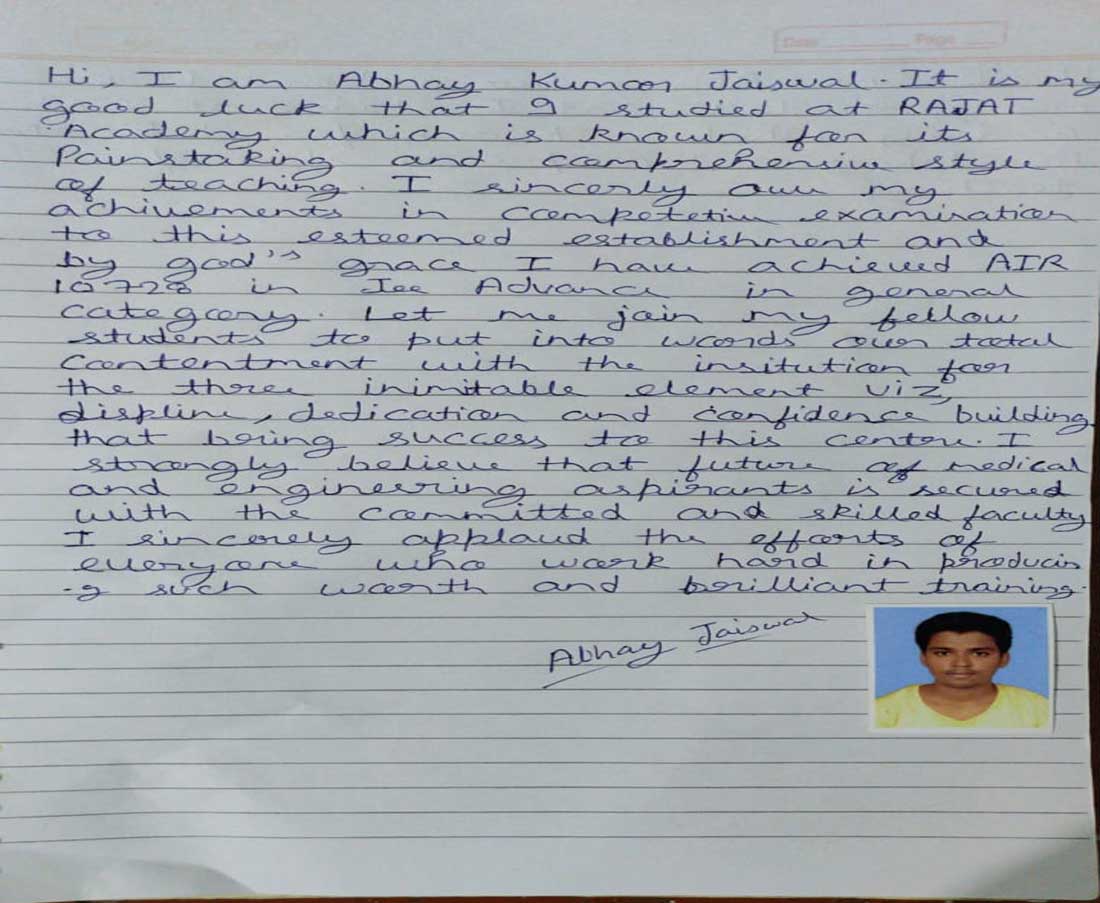 Date Page
Hi, I am Abhay Kumar Jaiswal. It is my
good luck that I studied at RAJAT
Academy which is known for its
Painstaking and comprehensive style
of teaching. I sincerly owe my
achivements in competetive examination
to this esteemed establishment and
by god's grace I have achieved AIR
10728 in Jee Advance in general
category. Let me join my fellow
students to put into words our total
contentment with the insitution for
the three inimitable element viz,
displine, dedication and confidence building
that bring success to this center. I
strongly believe that future of medical
and engineering aspirants is secured
with the committed and skilled faculty
I sincerely applaud the efforts of
everyone who work hard in producin
-g such worth and brilliant training.
Abhay Jaiswal